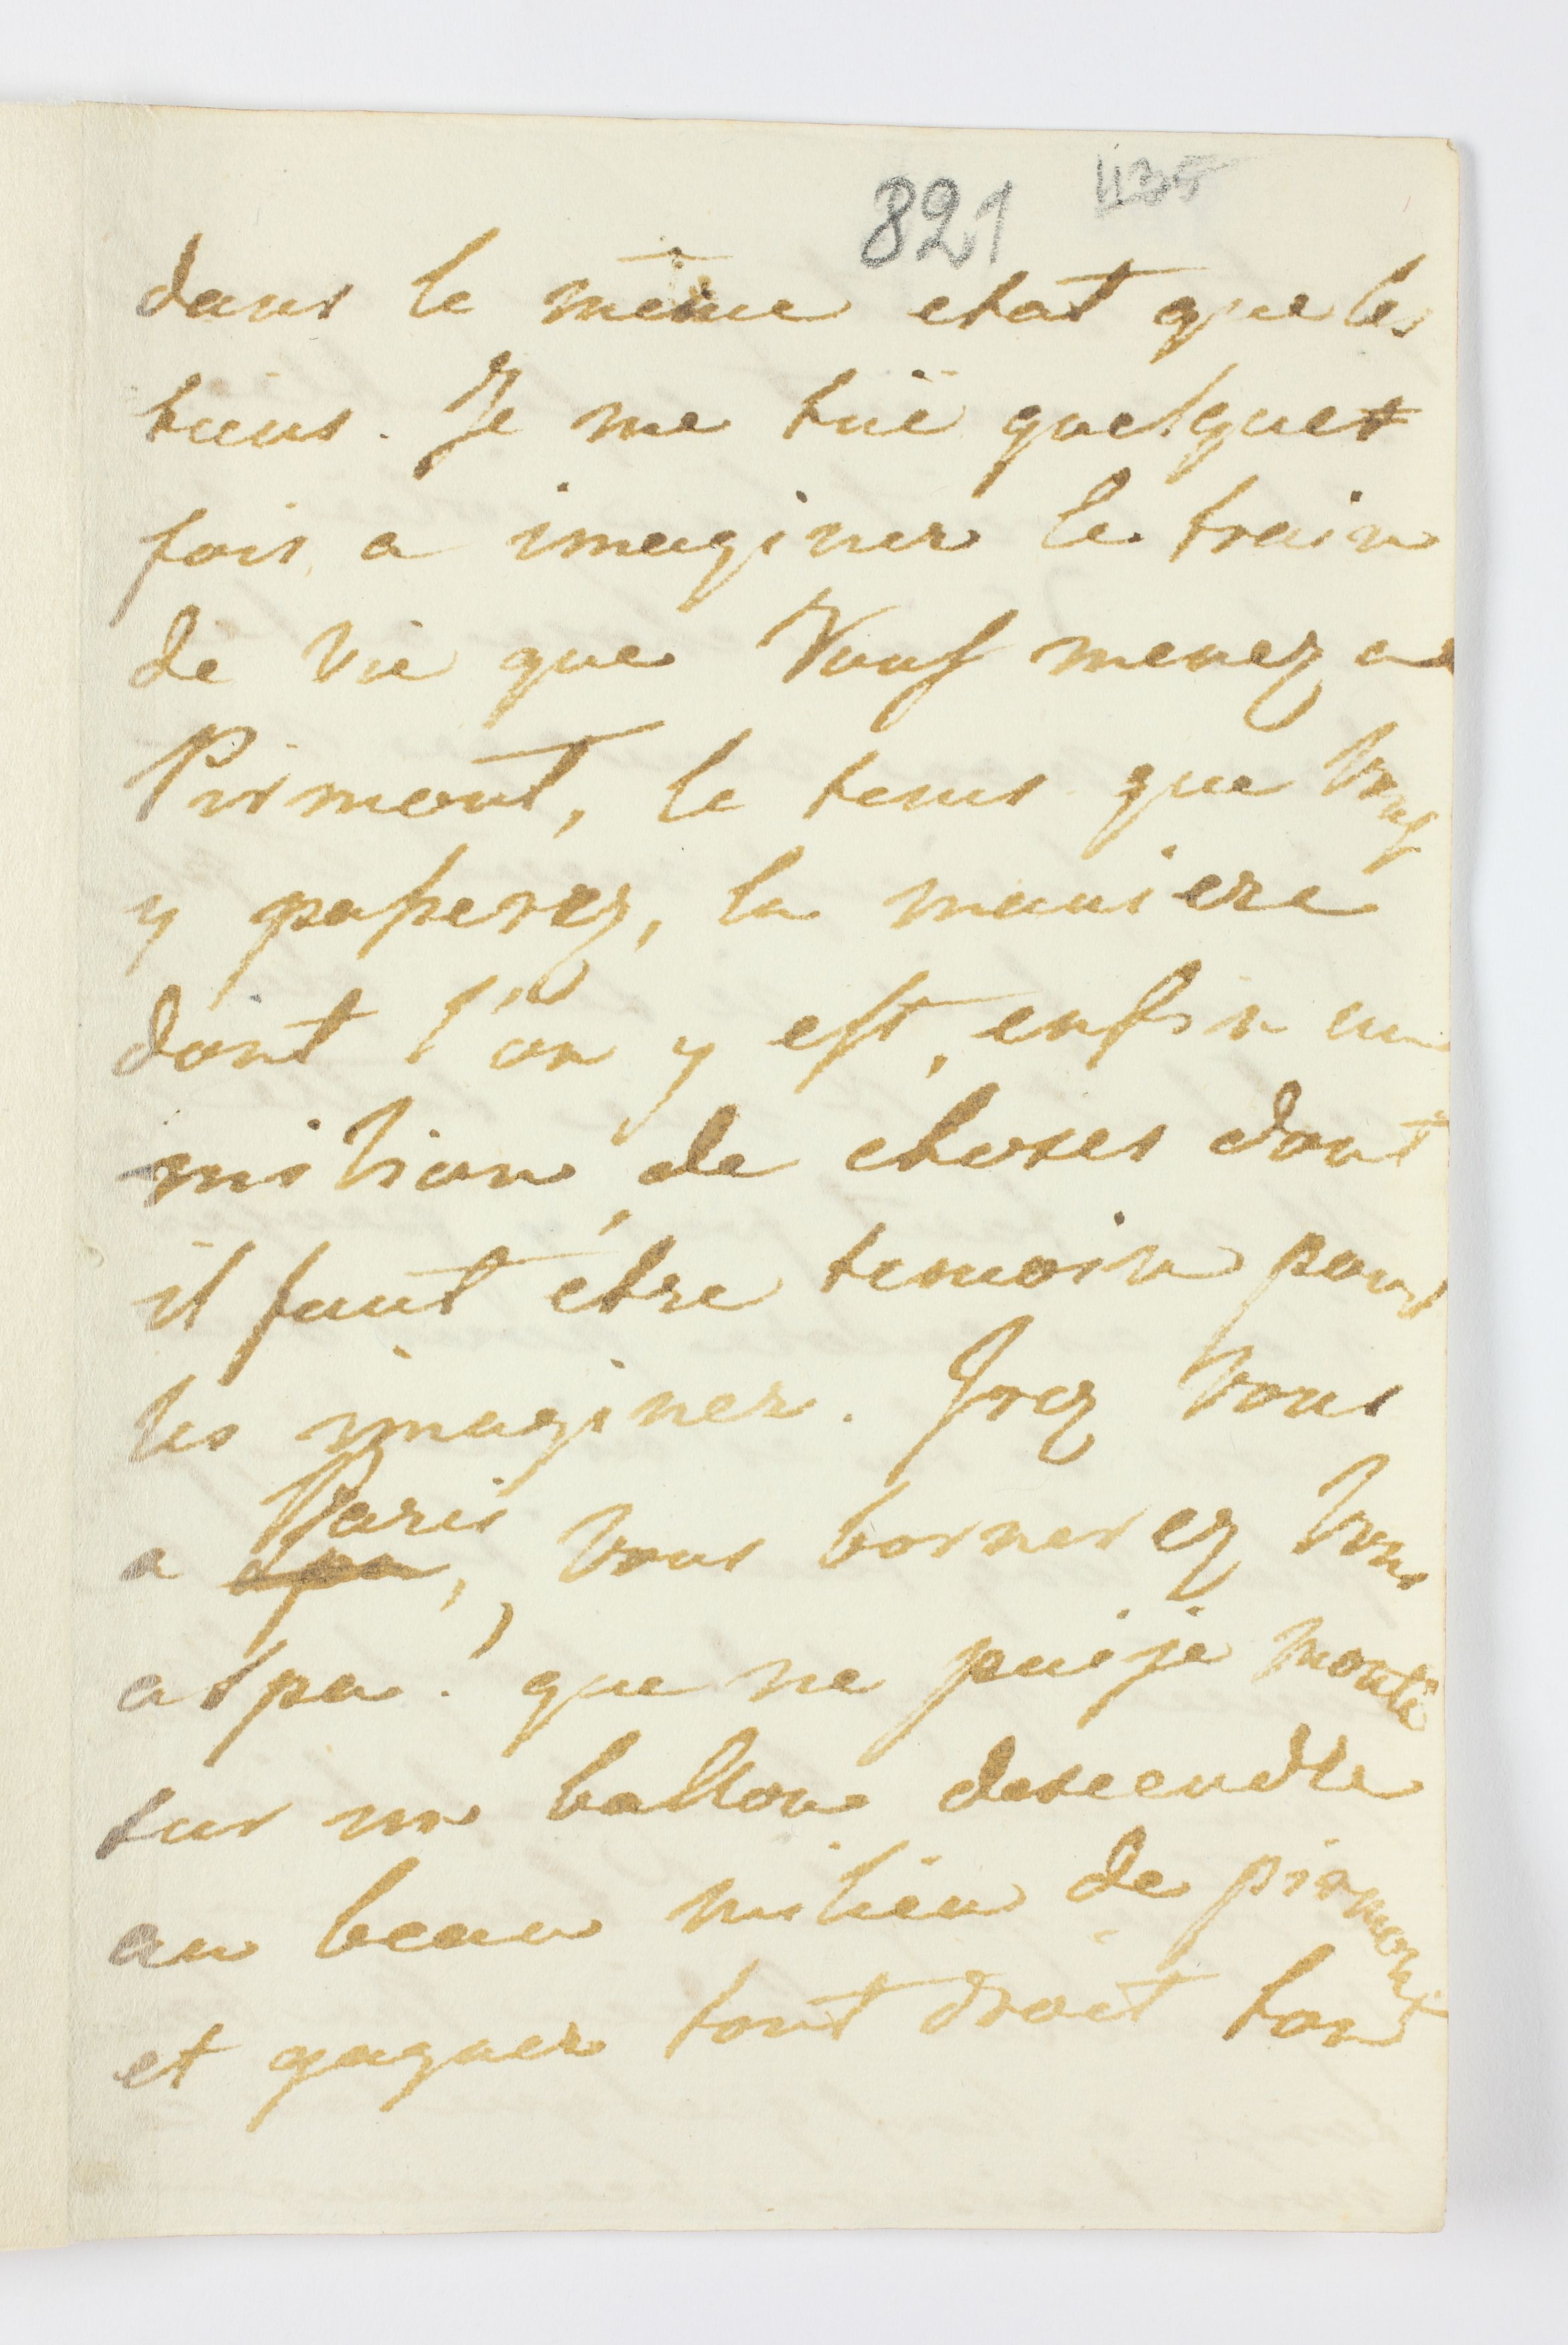 821 1135
dans le même etat que les
tiens. Je me tuë quelques
fois a imaginer le train
de vie que Vous menez a
Pirmont, le tems que Vous
y passerez, la maniere
dont l'on y est, enfin un
milion de choses dont
il faut être temoin pour
les imaginer. Irez Vous
a spa, Paris, Vous bornerez Vous
a spa? que ne puije monté
sur un ballon descendre
au beau milieu de pirmont
et gagner tout droit ton